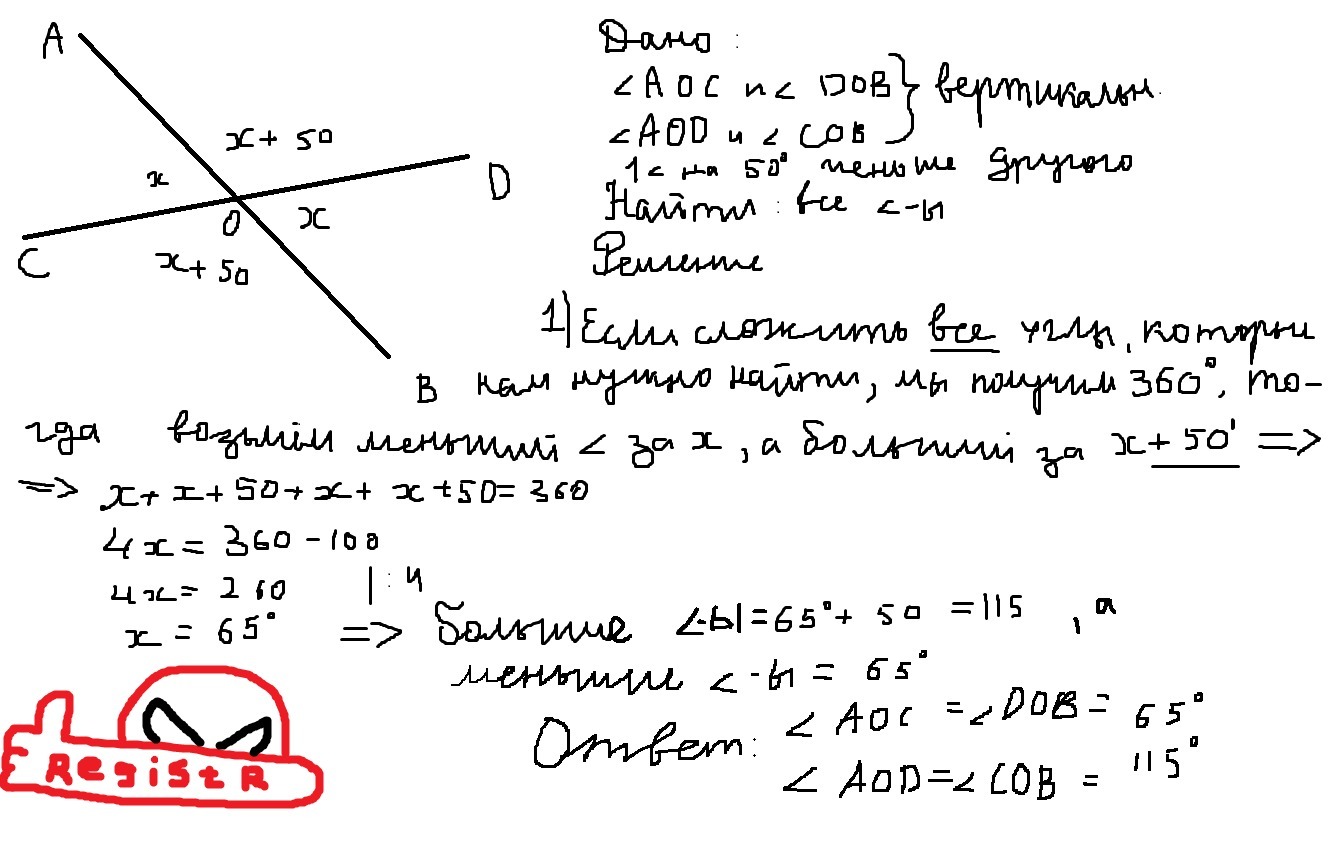 A
x + 50
x
D
O
x
C
x + 50
B
Дано :
∠AOC и ∠ DOB } вертикальн.
∠AOD и ∠ COB
1 ∠ на 50° меньше другого
Найти : все ∠-ы
Решение
1) Если сложить все углы, которые
нам нужно найти, мы получим 360°, то-
гда возьмём меньший ∠ за x, а больший за x + 50' =>
=> x + x + 50 + x + x + 50 = 360
4x = 360 - 100
4x = 260 | : 4
x = 65° => Большие ∠-ы = 65° + 50 = 115 , а
меньшие ∠-ы = 65°
Ответ: ∠ AOC = ∠ DOB = 65°
∠ AOD = ∠ COB = 115°
RegistR